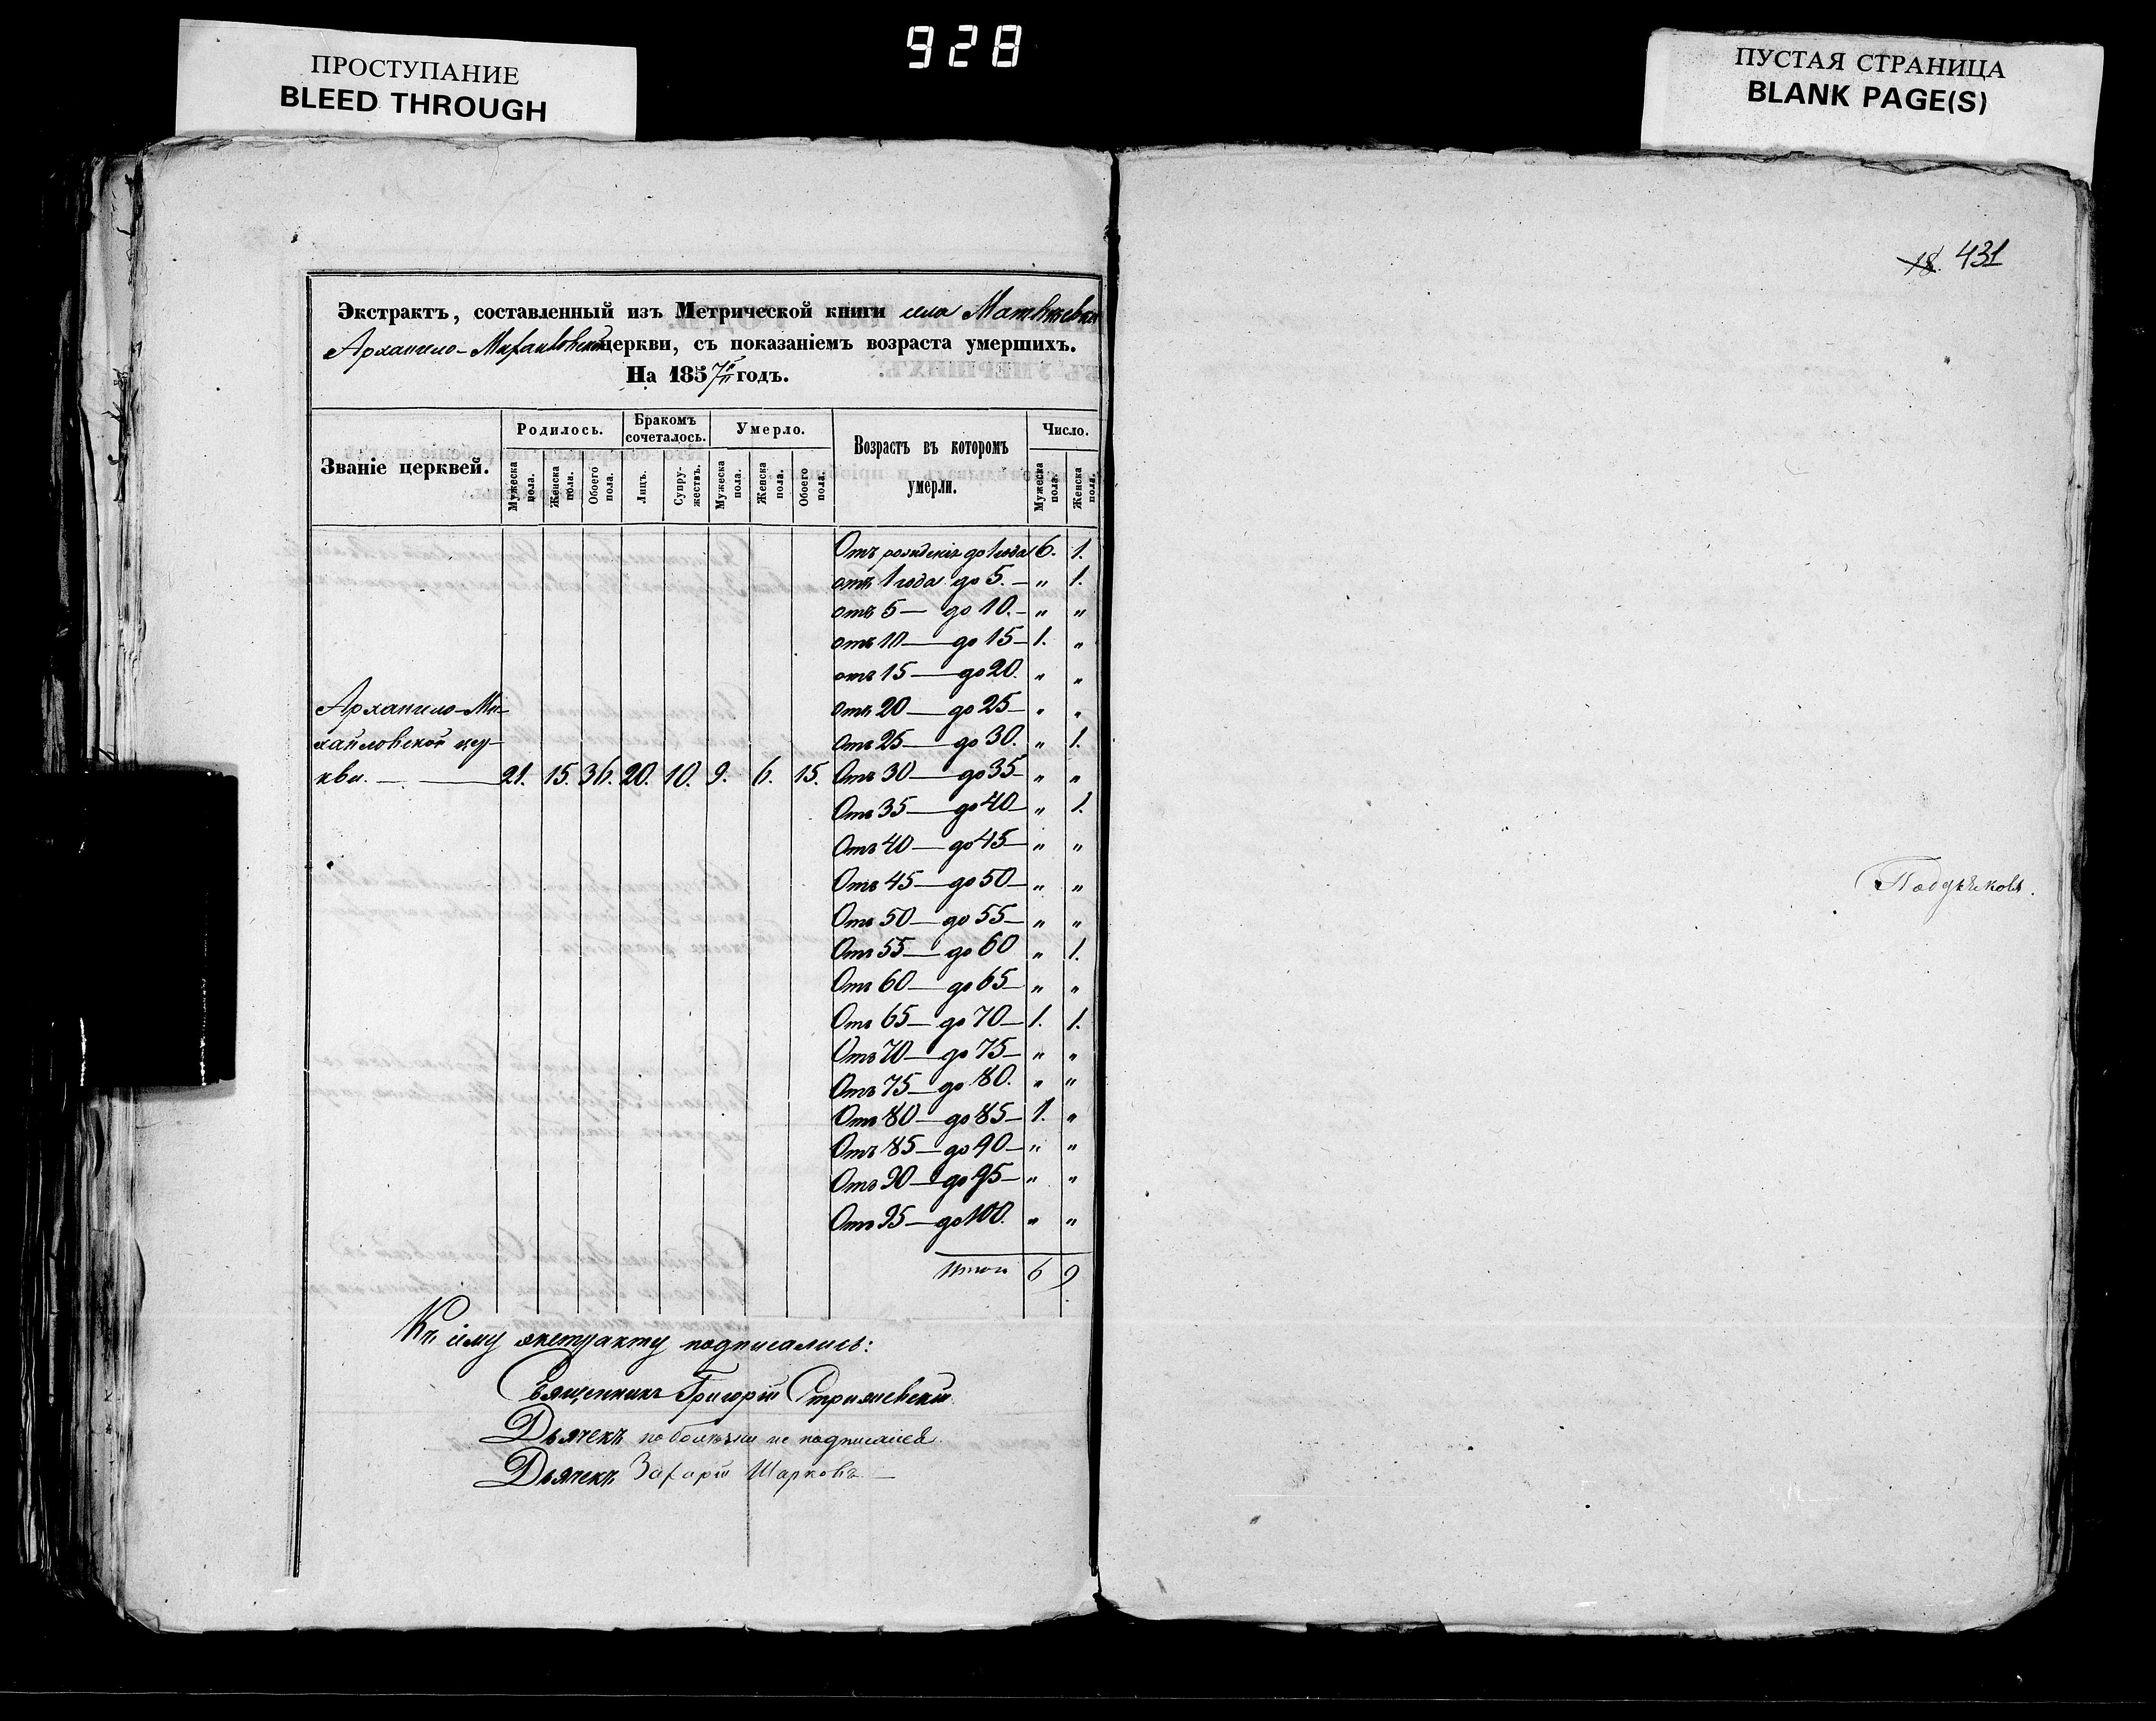 ПРОСТУПАНИЕ
BLEED THROUGH
928
ПУСТАЯ СТРАНИЦА
BLANK PAGE(S)
18. 431
Экстрактъ, составленный изъ Метрической книги села Матвѣевки
Архангело-Михайловской церкви, съ показаніемъ возраста умершихъ.
На 1857й годъ.
Званіе церквей.
Родилось.
Бракомъ
сочеталось.
Умерло.
Возрастъ въ которомъ
умерли.
Число.
Мужеска пола.
Женска пола.
Обоего пола.
Лицъ.
Супру-жествъ.
Мужеска пола.
Женска пола.
Обоего пола.
Мужеска пола.
Женска пола.
Отъ рожденія до 1 года 6. 1.
отъ 1 года до 5. — " 1.
отъ 5 — до 10. — " "
отъ 10 — до 15 — 1. "
отъ 15 — до 20. " "
Архангело-Ми-
отъ 20 — до 25 — " "
хайловской цер-
Отъ 25 — до 30. " 1.
кви. — — 21. 15. 36. 20. 10. 9. 6. 15. Отъ 30 — до 35 — " "
Отъ 35 — до 40 — " 1.
Отъ 40 — до 45 — " "
Отъ 45 — до 50 — " "
Отъ 50 — до 55 — " "
Отъ 55 — до 60 " 1.
Отъ 60 — до 65 — " "
Отъ 65 — до 70 — 1. 1.
Отъ 70 — до 75 — " "
Отъ 75 — до 80. " "
Отъ 80 — до 85 — 1. "
Отъ 85 — до 90 — " "
Отъ 90 — до 95 — " "
Отъ 95 — до 100. " "
Итого 6 9
Къ сему экстракту подписались:
Священникъ Григорій
Дьячекъ по болѣзни не подписался
Дьячекъ Захарій Шарковъ —